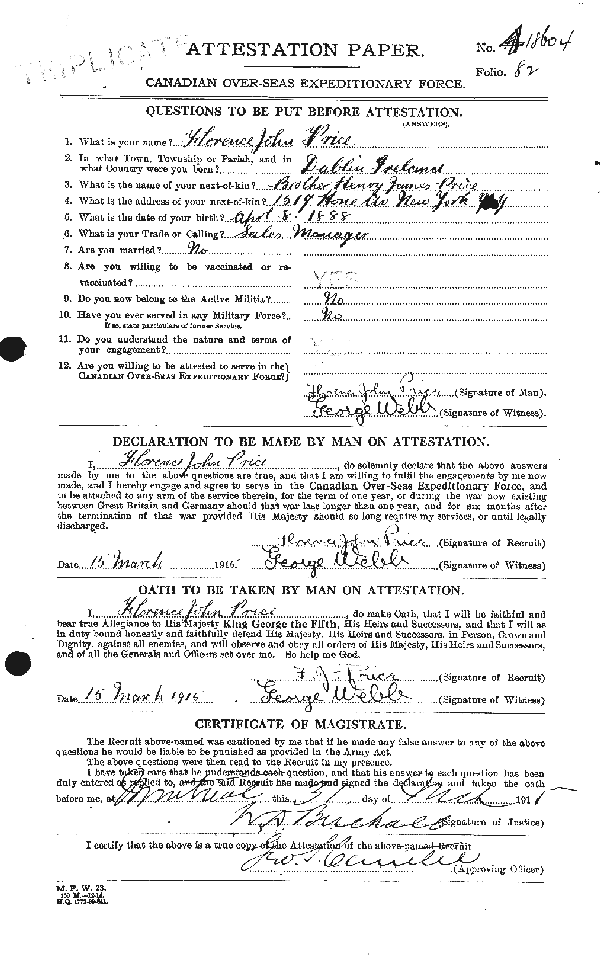 TRIPLICATE
ATTESTATION PAPER.
No. 418604
Folio. 82
CANADIAN OVER-SEAS EXPEDITIONARY FORCE.
QUESTIONS TO BE PUT BEFORE ATTESTATION.
(ANSWERS).
1. What is your name? Florence John Price
2. In what Town, Township or Parish, and in
what Country were you born? Dublin Ireland
3. What is the name of your next-of-kin? Brother Henry James Price
4. What is the address of your next-of-kin? 1219 Av New York
5. What is the date of your birth? April 8. 1888
6. What is your Trade or Calling? Sales Manager
7. Are you married? No
8. Are you willing to be vaccinated or re-
vaccinated? YES
9. Do you now belong to the Active Militia? No
10. Have you ever served in any Military Force? No
If so, state particulars of former Service.
11. Do you understand the nature and terms of
your engagement?
12. Are you willing to be attested to serve in the
CANADIAN OVER-SEAS EXPEDITIONARY FORCE?
Florence John Price (Signature of Man).
George Webb (Signature of Witness).
DECLARATION TO BE MADE BY MAN ON ATTESTATION.
I, Florence John Price, do solemnly declare that the above answers
made by me to the above questions are true, and that I am willing to fulfil the engagements by me now
made, and I hereby engage and agree to serve in the Canadian Over-Seas Expeditionary Force, and
to be attached to any arm of the service therein, for the term of one year, or during the war now existing
between Great Britain and Germany should that war last longer than one year, and for six months after
the termination of that war provided His Majesty should so long require my services, or until legally
discharged.
Florence John Price (Signature of Recruit)
Date 15 March 1915 George Webb (Signature of Witness)
OATH TO BE TAKEN BY MAN ON ATTESTATION.
I, Florence John Price, do make Oath, that I will be faithful and
bear true Allegiance to His Majesty King George the Fifth, His Heirs and Successors, and that I will as
in duty bound honestly and faithfully defend His Majesty, His Heirs and Successors, in Person, Crown and
Dignity, against all enemies, and will observe and obey all orders of His Majesty, His Heirs and Successors,
and of all the Generals and Officers set over me. So help me God.
F. J. Price (Signature of Recruit)
Date 15 March 1915 George Webb (Signature of Witness)
CERTIFICATE OF MAGISTRATE.
The Recruit above-named was cautioned by me that if he made any false answer to any of the above
questions he would be liable to be punished as provided in the Army Act.
The above questions were then read to the Recruit in my presence.
I have taken care that he understands each question, and that his answer to each question has been
duly entered as replied to, and the said Recruit has made and signed the declaration and taken the oath
before me, at Montreal this 31 day of March 191
(Signature of Justice)
I certify that the above is a true copy of the Attestation of the above-named Recruit
(Approving Officer)
M. F. W. 23.